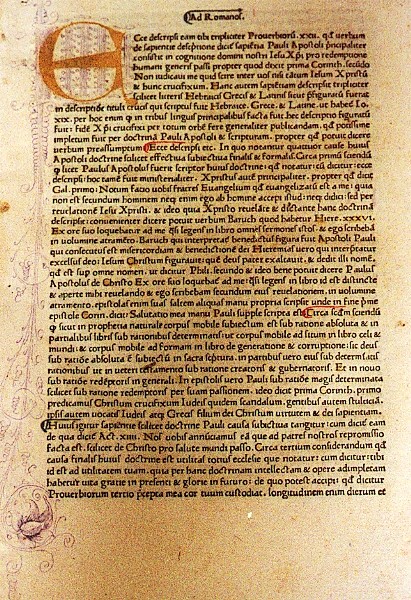 Ad Romanos.
Cce descripsi eam tibi tripliciter Prouerbiorū .xxii. qd uerbum
de sapientie descriptione dicit sapientia Pauli Apostoli principaliter
consistit in cognitione domini nostri Iesu Xpi pro redemptione
humani generis passi propter quod dixit prima Corinth. secundo
Non iudicaui me quid scire inter uos nisi tātum Iesum X pistū
& hunc crucifixum. Hanc autem sapientiam descripsit tripliciter
scilicet litteris Hebraicis Grecis & Latinis sicut figuratum fuit
in descriptiōe tituli crucis qui scriptus fuit Hebraice. Grece. & Latine. ut habeē Io.
xix. per hoc enim qd in tribus linguis principalibus facta fuit hec descriptio figuratū
fuit: fidē X pi crucifixi per totum orbē fere generaliter publicandam. qd potissime
impletum fuit per doctrinā Pauli Apostoli & scripturam. propter qd potuit dicere
uerbum preassumptum Ecce descripsi etc. In quo notantur quatuor cause huius
Apostoli doctrine scilicet effectiua subiectiua finalis & formalis. Circa primū sciendū
qd licet Paulus Apostolus fuerit scriptor huius doctrine: qd notatur cū dicitur: ecce
descripsi: hoc tamē fuit ministerialiter. X pistus autē principaliter. propter qd dicit
Gal. primo: Notum facio uobis fratres Euangelium qd euangelizatū est a me: quia
non est secundum hominem neq; enim ego ab homine accepi istud: neq; didici: sed per
reuelationē Iesu X pisti. & ideo qua X pisto reuelāte & dictante hanc doctrinā
descripsit: conuenienter dicere potuit uerbum Baruch quod habetur Hiere .xxxvi.
Ex ore suo loquebatur ad me ꝗsi legens in libro omnes sermones istos: & ego scribebā
in uolumine atramēto. Baruch qui interpretat̃ benedictus figura fuit Apostoli Pauli
qui consecutus est misericordiam & benedictionē dei Hieremias uero qui interpretatur
excelsus deo Iesum Christum figurauit: quē deus pater exaltauit. & dedit illi nomē.
qd est sup omne nomen. ut dicitur Phili. secundo & ideo bene potuit dicere Paulus
Apostolus de Christo Ex ore suo loquebat̃ ad me: ꝗsi legens in libro id est distincte
& aperte mihi reuelando & ego scribebam secundum eius reuelationem. in uolumine
atramento. epistolas enim suas saltem aliquas manu propria scripsit unde in fine prime
epistole Corin. dicit: Salutatio mea manu Pauli supple scripta est Circa scdm sciendū
qd sicut in prophetia naturale corpus mobile subiectum est sub ratione absoluta & in
partialibus libris sub rationibus determinatis: ut corpus mobile ad situm in libro celi &
mundi: & corpus mobile ad formam in libro de generatione & corruptione: sic deus
sub ratiōe absoluta ē subiectū in sacra scriptura. in partibus uero eius sub determinatis
rationibus ut in ueteri testamento sub ratione creatoris & gubernatoris. Et in nouo
sub ratiōe redēptoris in generali. In epistolis uero Pauli sub ratiōe magis determinata
scilicet sub ratione redemptoris per suam passionem. ideo dicit prima Corinth. primo
predicamus Christum crucifixum Iudeis quidem scandalum. gentibus autem stulticiā.
ipsis autem uocatis Iudeis atq; Grecis filium dei Christum uirtutem & dei sapientiam.
Huiusigitur sapientie scilicet doctrine Pauli causa subiectiua tangitur: cum dicit̃ eam
de qua dicit̃ Act. xiii. Nos uobis annūciamus eā que ad patres nostros repromissio
facta est. scilicet de Christo pro salute mundi passo. Circa tertium considerandum qd
causa finalis huius doctrine est utilitas totius ecclesie que notatur: cum dicitur: tibi
id est ad utilitatem tuam. quia per hanc doctrinam intellectam & opere adimpletam
habetur uita gratie in presenti & glorie in futuro: de quo potest accipi qd dicitur
Prouerbiorum tertio p̄cepta mea cor tuum custodiat. longitudinem enim dierum et